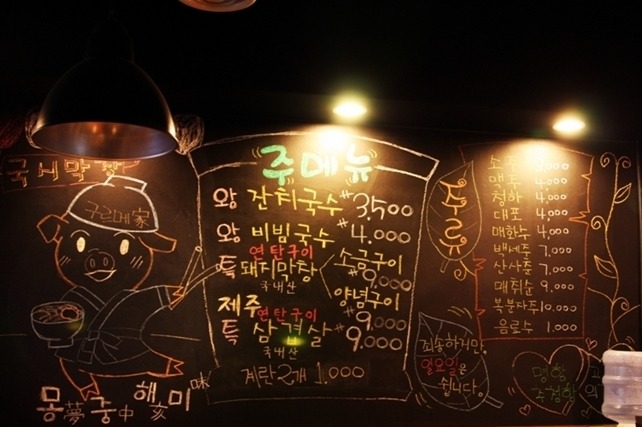 국시막창
구린메家
몽夢중中해亥미味
주메뉴
왕 잔치국수 #3,500
왕 비빔국수 #4,000
연탄구이
특 돼지막창
국내산
소금구이
양념구이
9,000
제주 연탄구이
특 삼겹살 #9,000
국내산
계란2개 1,000
주류
소주
맥주 4,000
청하 4,000
대포 4,000
매화수 4,000
백세주 7,000
산사춘 7,000
매취순
복분자주 10,000
음료수 1,000
죄송하지만,
일요일은
쉽니다.